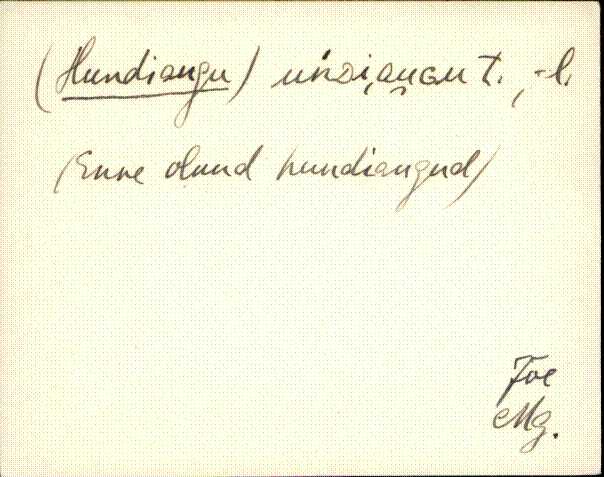 (Hundiangu) uńᴅi̯au̯ɢu t., -l.
(Enne olund hundiangud)
Joe
Mg.